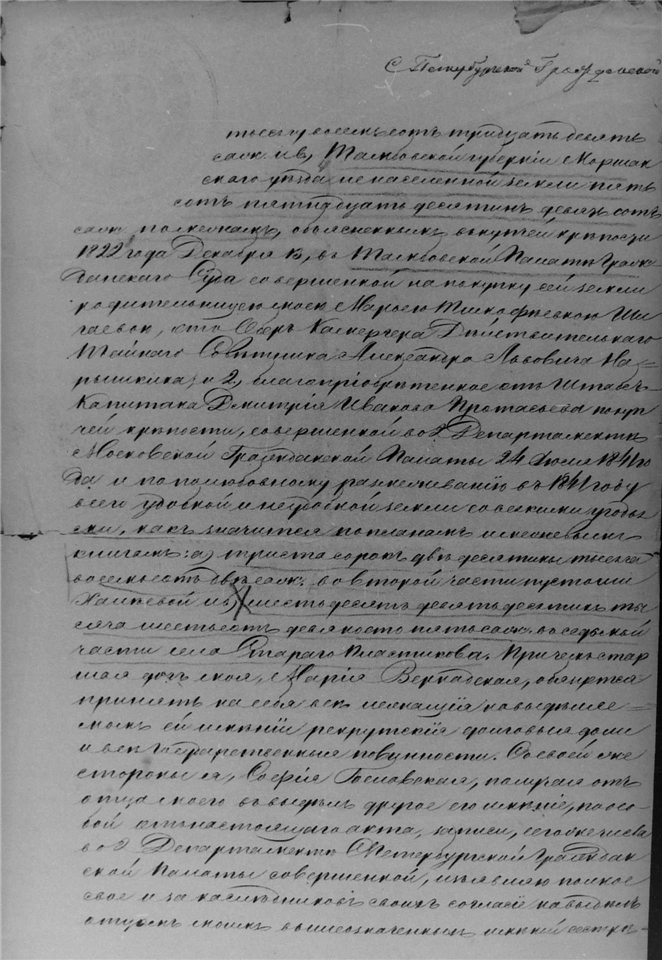 С Петербургской Гражданской
тысяч восемьсотъ тридцать девять
саж. и в, Тамбовской губерніи Моршан
скаго уѣзда ненаселенной земли пять
сотъ пятнадцать десятинъ девятьсотъ
саж. объясненныхъ въ купчей крѣпости
1822 года Декабря 13, въ Тамбовской Палатѣ Граж
данскаго Суда совершенной на покупку ей земли
родительницею моею Марьею Тимофѣевною
отъ Оберъ Камергера Дѣйствительнаго
Тайнаго Совѣтника Александра Львовича На
рышкина, и 2, благопріобрѣтенное отъ Штабсъ
Капитана Дмитрія Иванова Протасьева по куп
чей крѣпости, совершенной во 2 Департаментѣ
Московской Гражданской Палаты 24 Іюля 1841 го
да и по полюбовному размежеванію въ 1841 году
всего удобной и неудобной земли со всѣми угодь
ями, какъ значится по планамъ и межевымъ
книгамъ: а) триста сорокъ двѣ десятины тысяча
восемьсотъ двѣ саж. во второй части пустоши
и в) шестьдесятъ девять десятинъ ты
сяча шестьсотъ девяносто пять саж. въ седьмой
части села Стараго Пластикова. Причемъ стар
шая дочь моя, Марія Вернадская, обязуется
принять на себя всѣ лежащія на выдѣляе
момъ ей имѣніи рекрутскія долговыя доли
и всѣ Государственныя повинности. Съ своей же
стороны я, Софія Гославская, получая отъ
отца моего въ выдѣлъ другое его имѣніе, по осо
бой отъ настоящаго акта, записи, сего же числа
во 2 Департаментѣ С Петербургской Граждан
ской Палаты совершенной, изъявляю полное
свое и за наслѣдниковъ своихъ согласіе на выдѣлъ
отцемъ моимъ вышеозначенныхъ имѣній сестрѣ